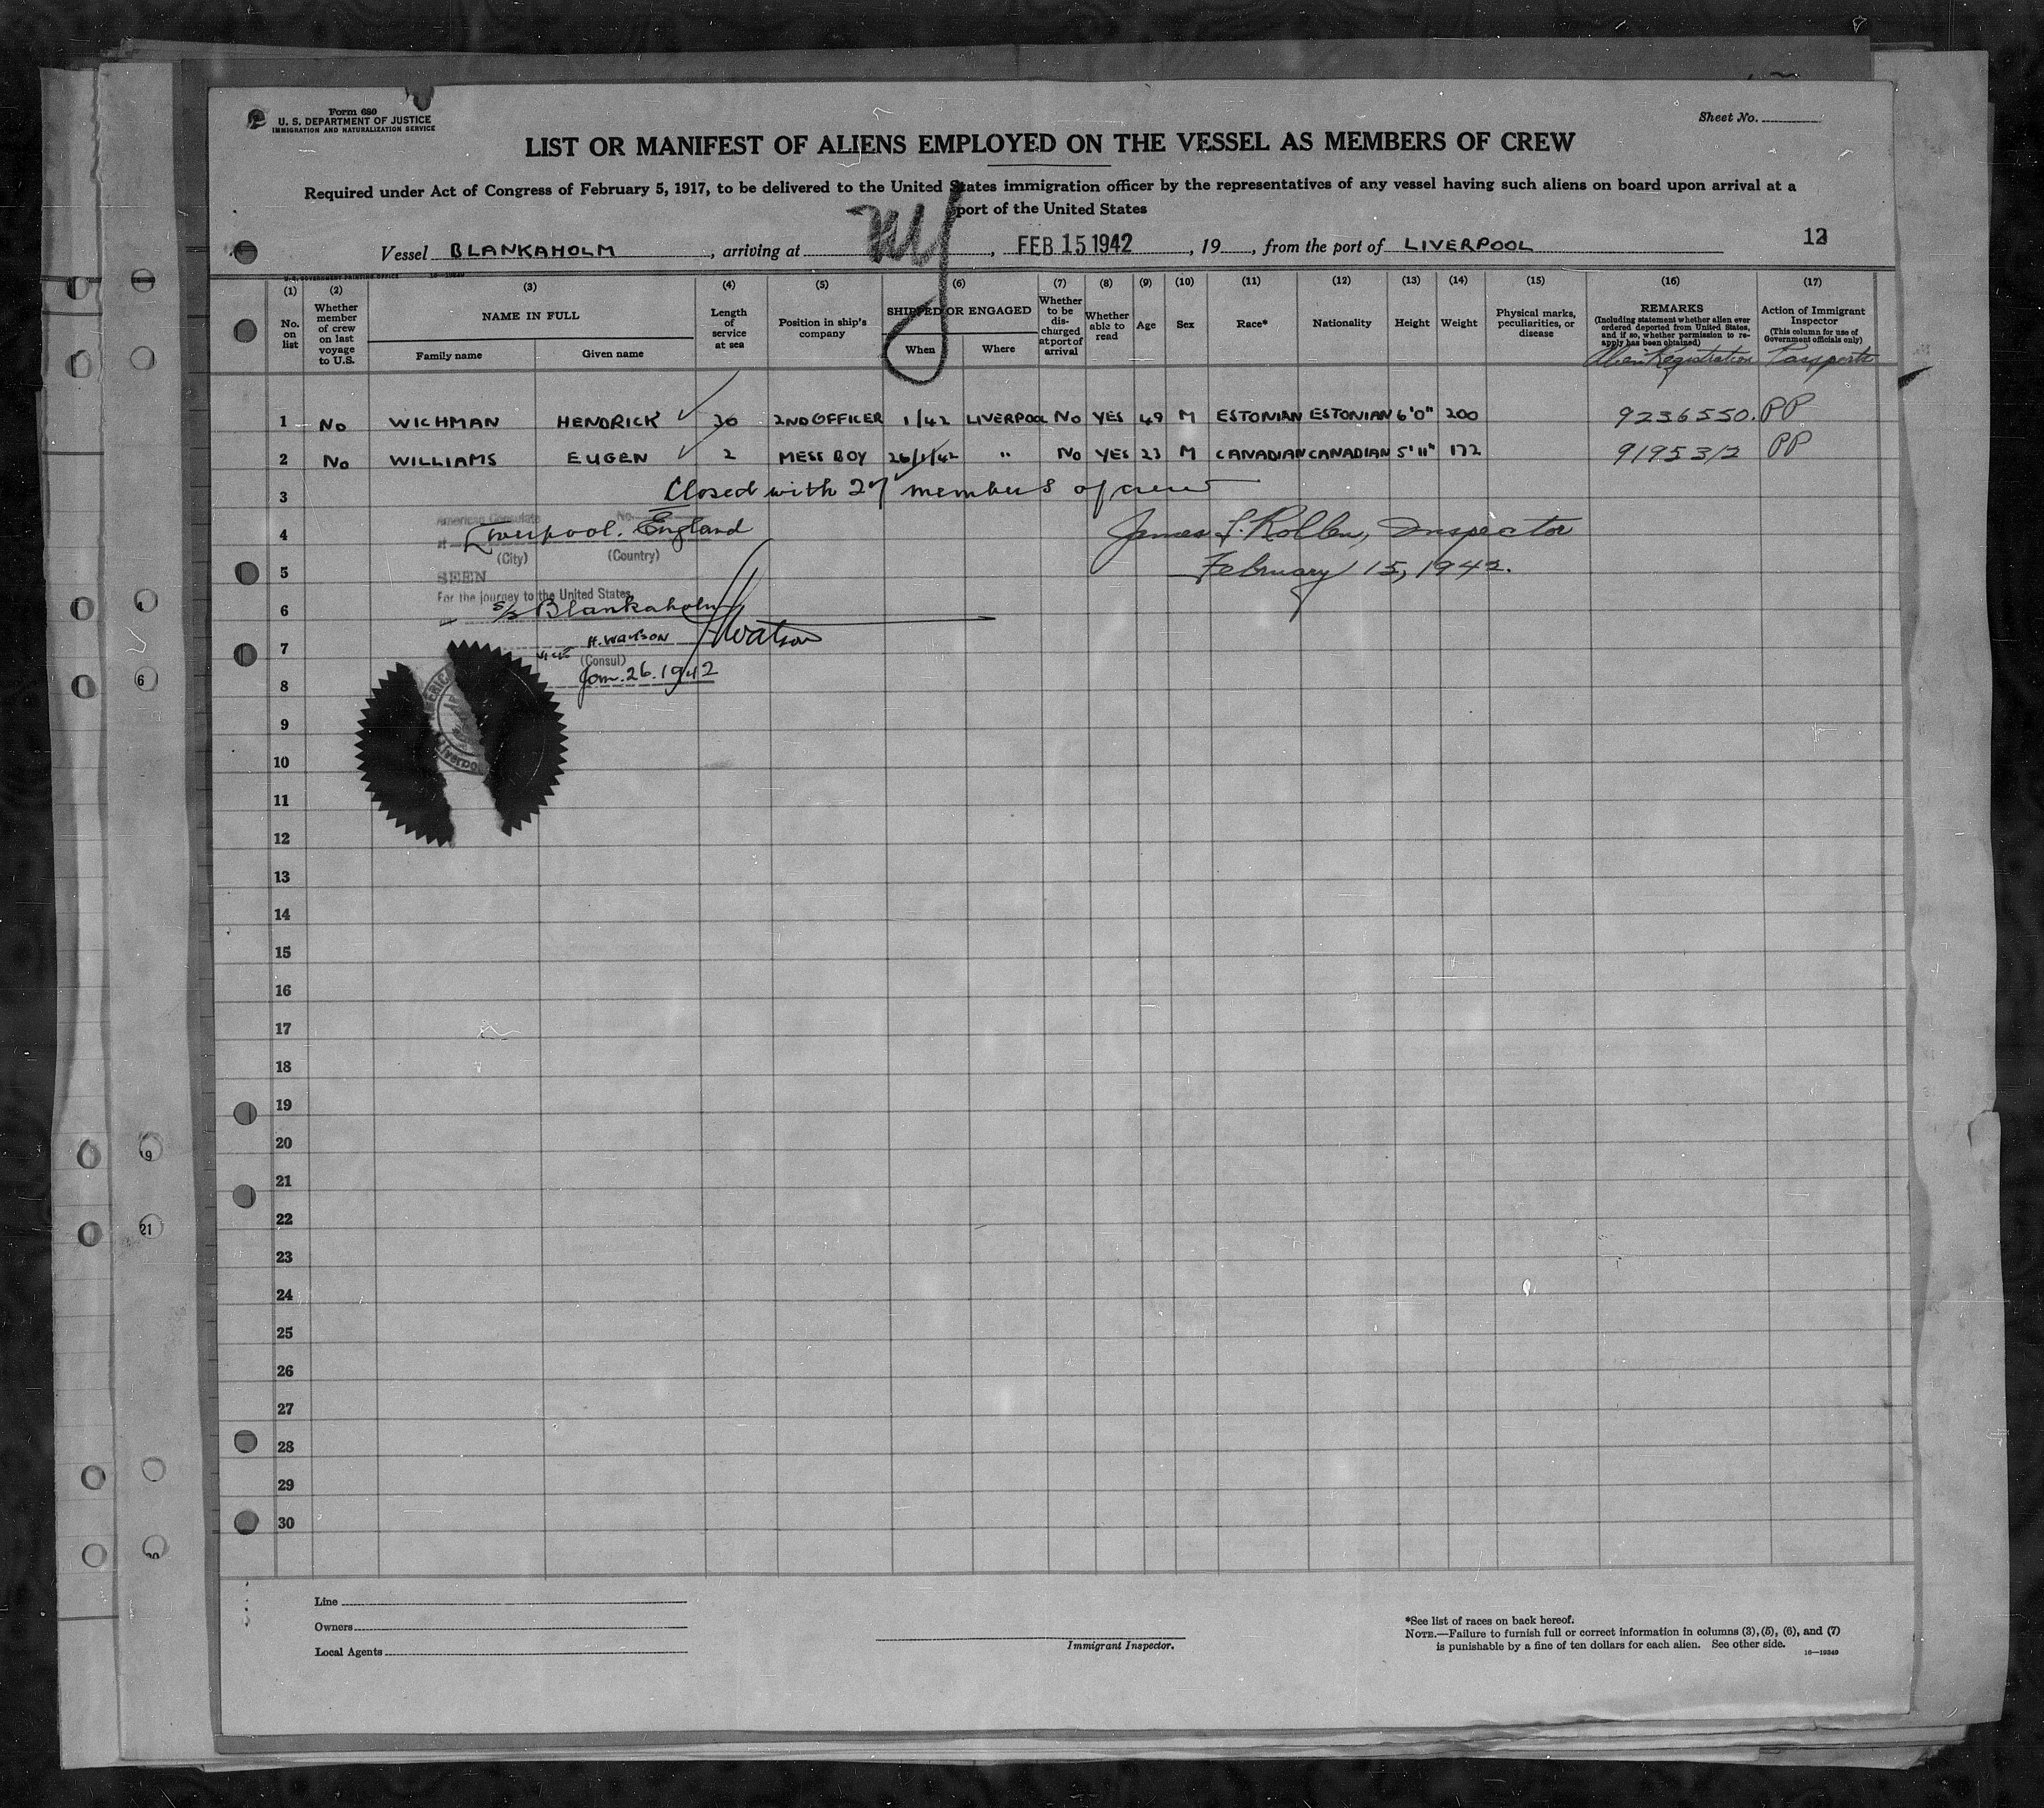 Form 680
U. S. DEPARTMENT OF JUSTICE
IMMIGRATION AND NATURALIZATION SERVICE
Sheet No.
LIST OR MANIFEST OF ALIENS EMPLOYED ON THE VESSEL AS MEMBERS OF CREW
Required under Act of Congress of February 5, 1917, to be delivered to the United States immigration officer by the representatives of any vessel having such aliens on board upon arrival at a
port of the United States
Vessel BLANKAHOLM, arriving at NY, FEB 15 1942, 19, from the port of LIVERPOOL
U.S. GOVERNMENT PRINTING OFFICE 16—19349
(1) (2) (3) (4) (5) (6) (7) (8) (9) (10) (11) (12) (13) (14) (15) (16) (17)
No. on list
Whether member of crew on last voyage to U.S.
NAME IN FULL
Family name
Given name
Length of service at sea
Position in ship's company
SHIPPED OR ENGAGED
When
Where
Whether to be discharged at port of arrival
Whether able to read
Age
Sex
Race*
Nationality
Height
Weight
Physical marks, peculiarities, or disease
REMARKS
(Including statement whether alien ever ordered deported from United States, and if so, whether permission to reapply has been obtained)
Alien Registration
Action of Immigrant Inspector
(This column for use of Government officials only)
Passports
1 No WICHMAN HENDRICK 30 2ND OFFICER 1/42 LIVERPOOL No YES 49 M ESTONIAN ESTONIAN 6'0" 200 9236550. PP
2 No WILLIAMS EUGEN 2 MESS BOY 26/1/42 " No YES 23 M CANADIAN CANADIAN 5'11" 172 9195312 PP
3 Closed with 27 members of crew
American Consulate No.
4 at Liverpool. England James F. Rollen, Inspector
(City) (Country)
5 February 15, 1942.
SEEN
For the journey to the United States
6 s/s Blankaholm
HWatson
7 vice H. WATSON
(Consul)
8 Jan. 26. 1942
9
10
11
12
13
14
15
16
17
18
19
20
21
22
23
24
25
26
27
28
29
30
Line
Owners
Local Agents
Immigrant Inspector.
*See list of races on back hereof.
NOTE.—Failure to furnish full or correct information in columns (3), (5), (6), and (7)
is punishable by a fine of ten dollars for each alien. See other side.
16—19349